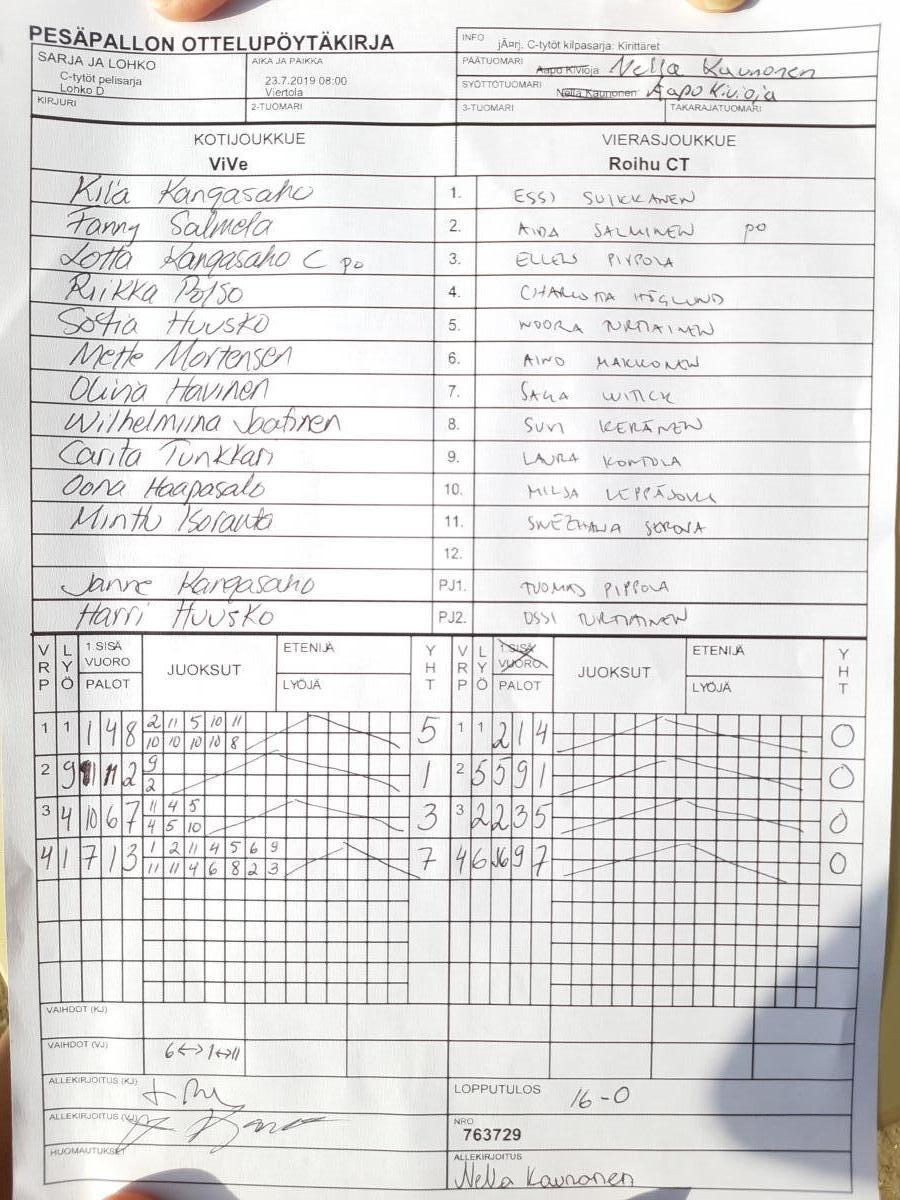 PESÄPALLON OTTELUPÖYTÄKIRJA
INFO jÃ¤rj. C-tytöt kilpasarja: Kirittäret
SARJA JA LOHKO
C-tytöt pelisarja
Lohko D
AIKA JA PAIKKA
23.7.2019 08:00
Viertola
PÄÄTUOMARI Aapo Kivioja Nella Kaunonen
SYÖTTÖTUOMARI Nella Kaunonen Aapo Kivioja
KIRJURI 2-TUOMARI 3-TUOMARI TAKARAJATUOMARI
KOTIJOUKKUE VIERASJOUKKUE
ViVe Roihu CT
Kila Kangasaho 1. ESSI SUIKKANEN
Fanny Salmela 2. AIDA SALMINEN po
Lotta Kangasaho C po 3. ELLEN PIPPOLA
Riikka Polso 4. CHARLOTTA HÖGLUND
Sofia Huusko 5. NOORA TURTIAINEN
Mette Mortensen 6. AINO MAKKONEN
Olivia Havinen 7. SAGA WITICK
Wilhelmiina Jaatinen 8. SUVI KERÄNEN
Carita Tunkkari 9. LAURA KONTULA
Oona Haapasalo 10. MILJA LEPPÄJOKI
Minttu Isorauta 11. SNEZHANA
12.
Janne Kangasaho PJ1. TUOMAS PIPPOLA
Harri Huusko PJ2. OSSI TURTIAINEN
VRP LYÖ 1.SISÄ VUORO PALOT JUOKSUT ETENIJÄ LYÖJÄ YHT VRP LYÖ 1.SISÄ VUORO PALOT JUOKSUT ETENIJÄ LYÖJÄ YHT
1 1 1 4 8 2 11 5 10 11 5 1 1 2 1 4 0
10 10 10 10 8
2 9 11 2 9 1 2 5 5 9 1 0
2
3 4 10 6 7 11 4 5 3 3 2 2 3 5 0
4 5 10
4 1 7 1 3 1 2 11 4 5 6 9 7 4 6 6 9 7 0
11 11 4 6 8 2 3
VAIHDOT (KJ)
VAIHDOT (VJ) 6↔1↔11
ALLEKIRJOITUS (KJ)
LOPPUTULOS 16-0
ALLEKIRJOITUS (VJ)
NRO
763729
HUOMAUTUKSET
ALLEKIRJOITUS
Nella Kaunonen